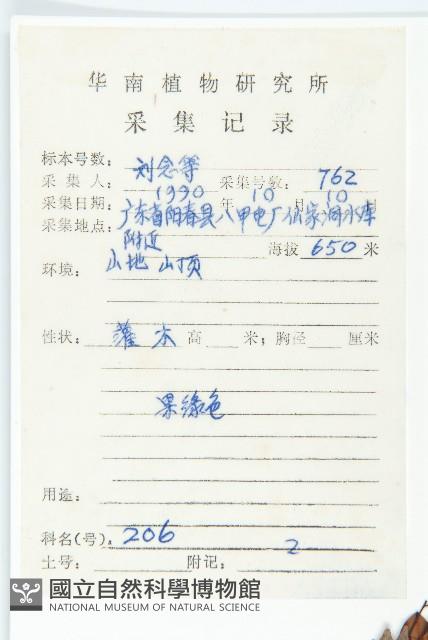 华南植物研究所
采集记录
标本号数:
采集人: 刘念等 采集号数: 762
采集日期: 1990 年 10 月 10 日
采集地点: 广东省阳春县八甲电厂仙家洞水库
附近 海拔 650 米
环境: 山地 山顶
性状: 灌木 高 米; 胸径 厘米
果绿色
用途:
科名(号). 206
土号: 附记: 2
國立自然科學博物館
NATIONAL MUSEUM OF NATURAL SCIENCE